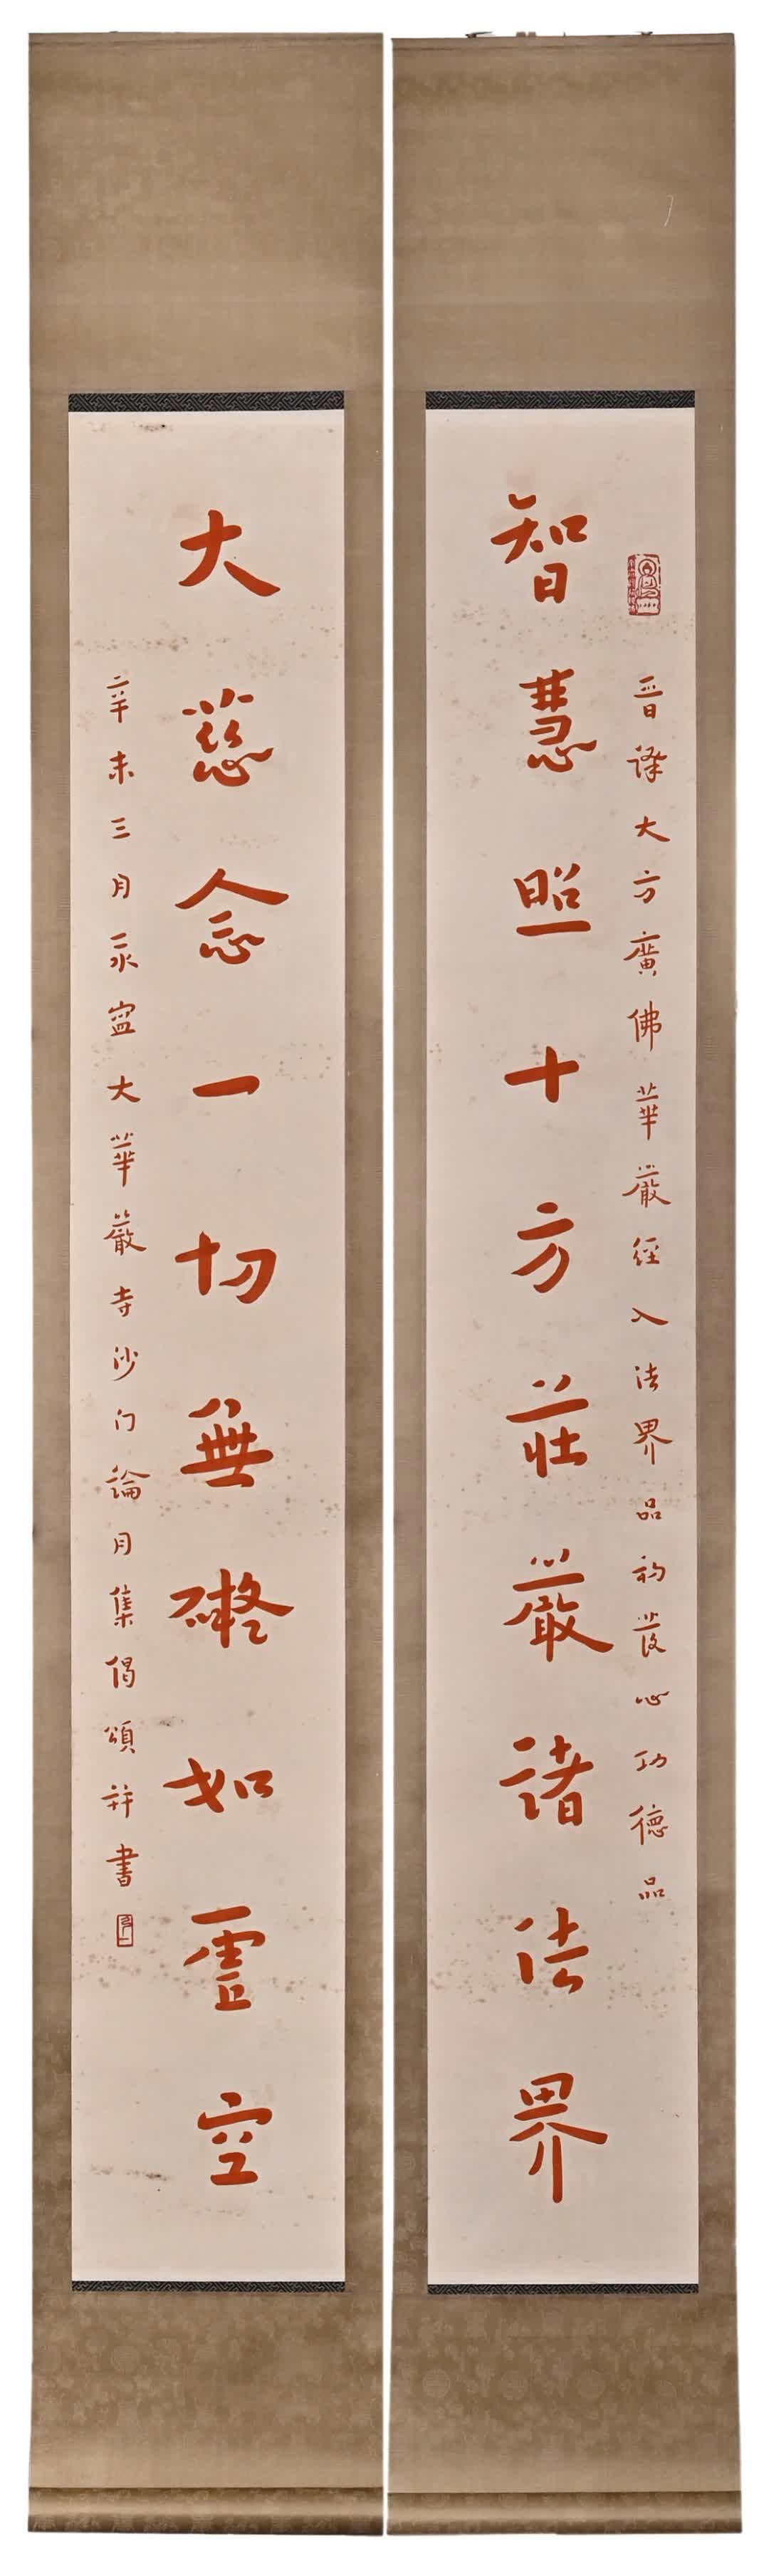 晉译大方廣佛華嚴經入法界品初發心功德品
智慧照十方莊嚴諸法界
大慈念一切無礙如虛空
辛未三月永寍大華嚴寺沙门論月集偈頌并書